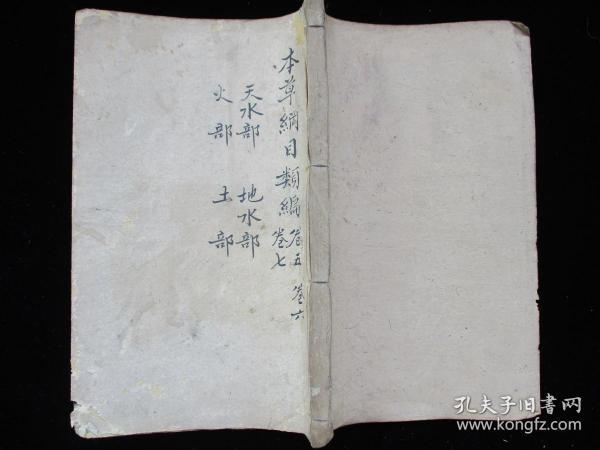 本草綱目類編卷五 卷六
卷七
天水部 地水部
火部 土部
孔夫子旧書网
www.kongfz.com